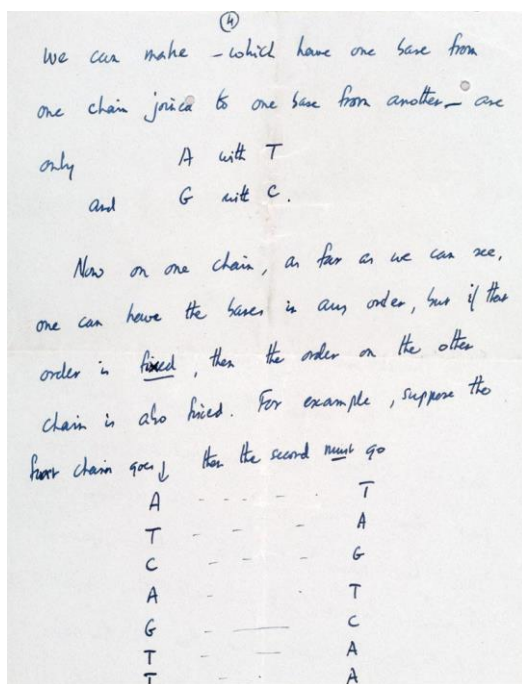 4
we can make – which have one base from
one chain joined to one base from another – are
only A with T
and G with C.
Now on one chain, as far as we can see,
one can have the bases in any order, but if that
order is fixed, then the order on the other
chain is also fixed. For example, suppose the
first chain goes ↓ then the second must go
A - - - - T
T - - - A
C - - - G
A - - - T
G - - - C
T - - - A
T - - A